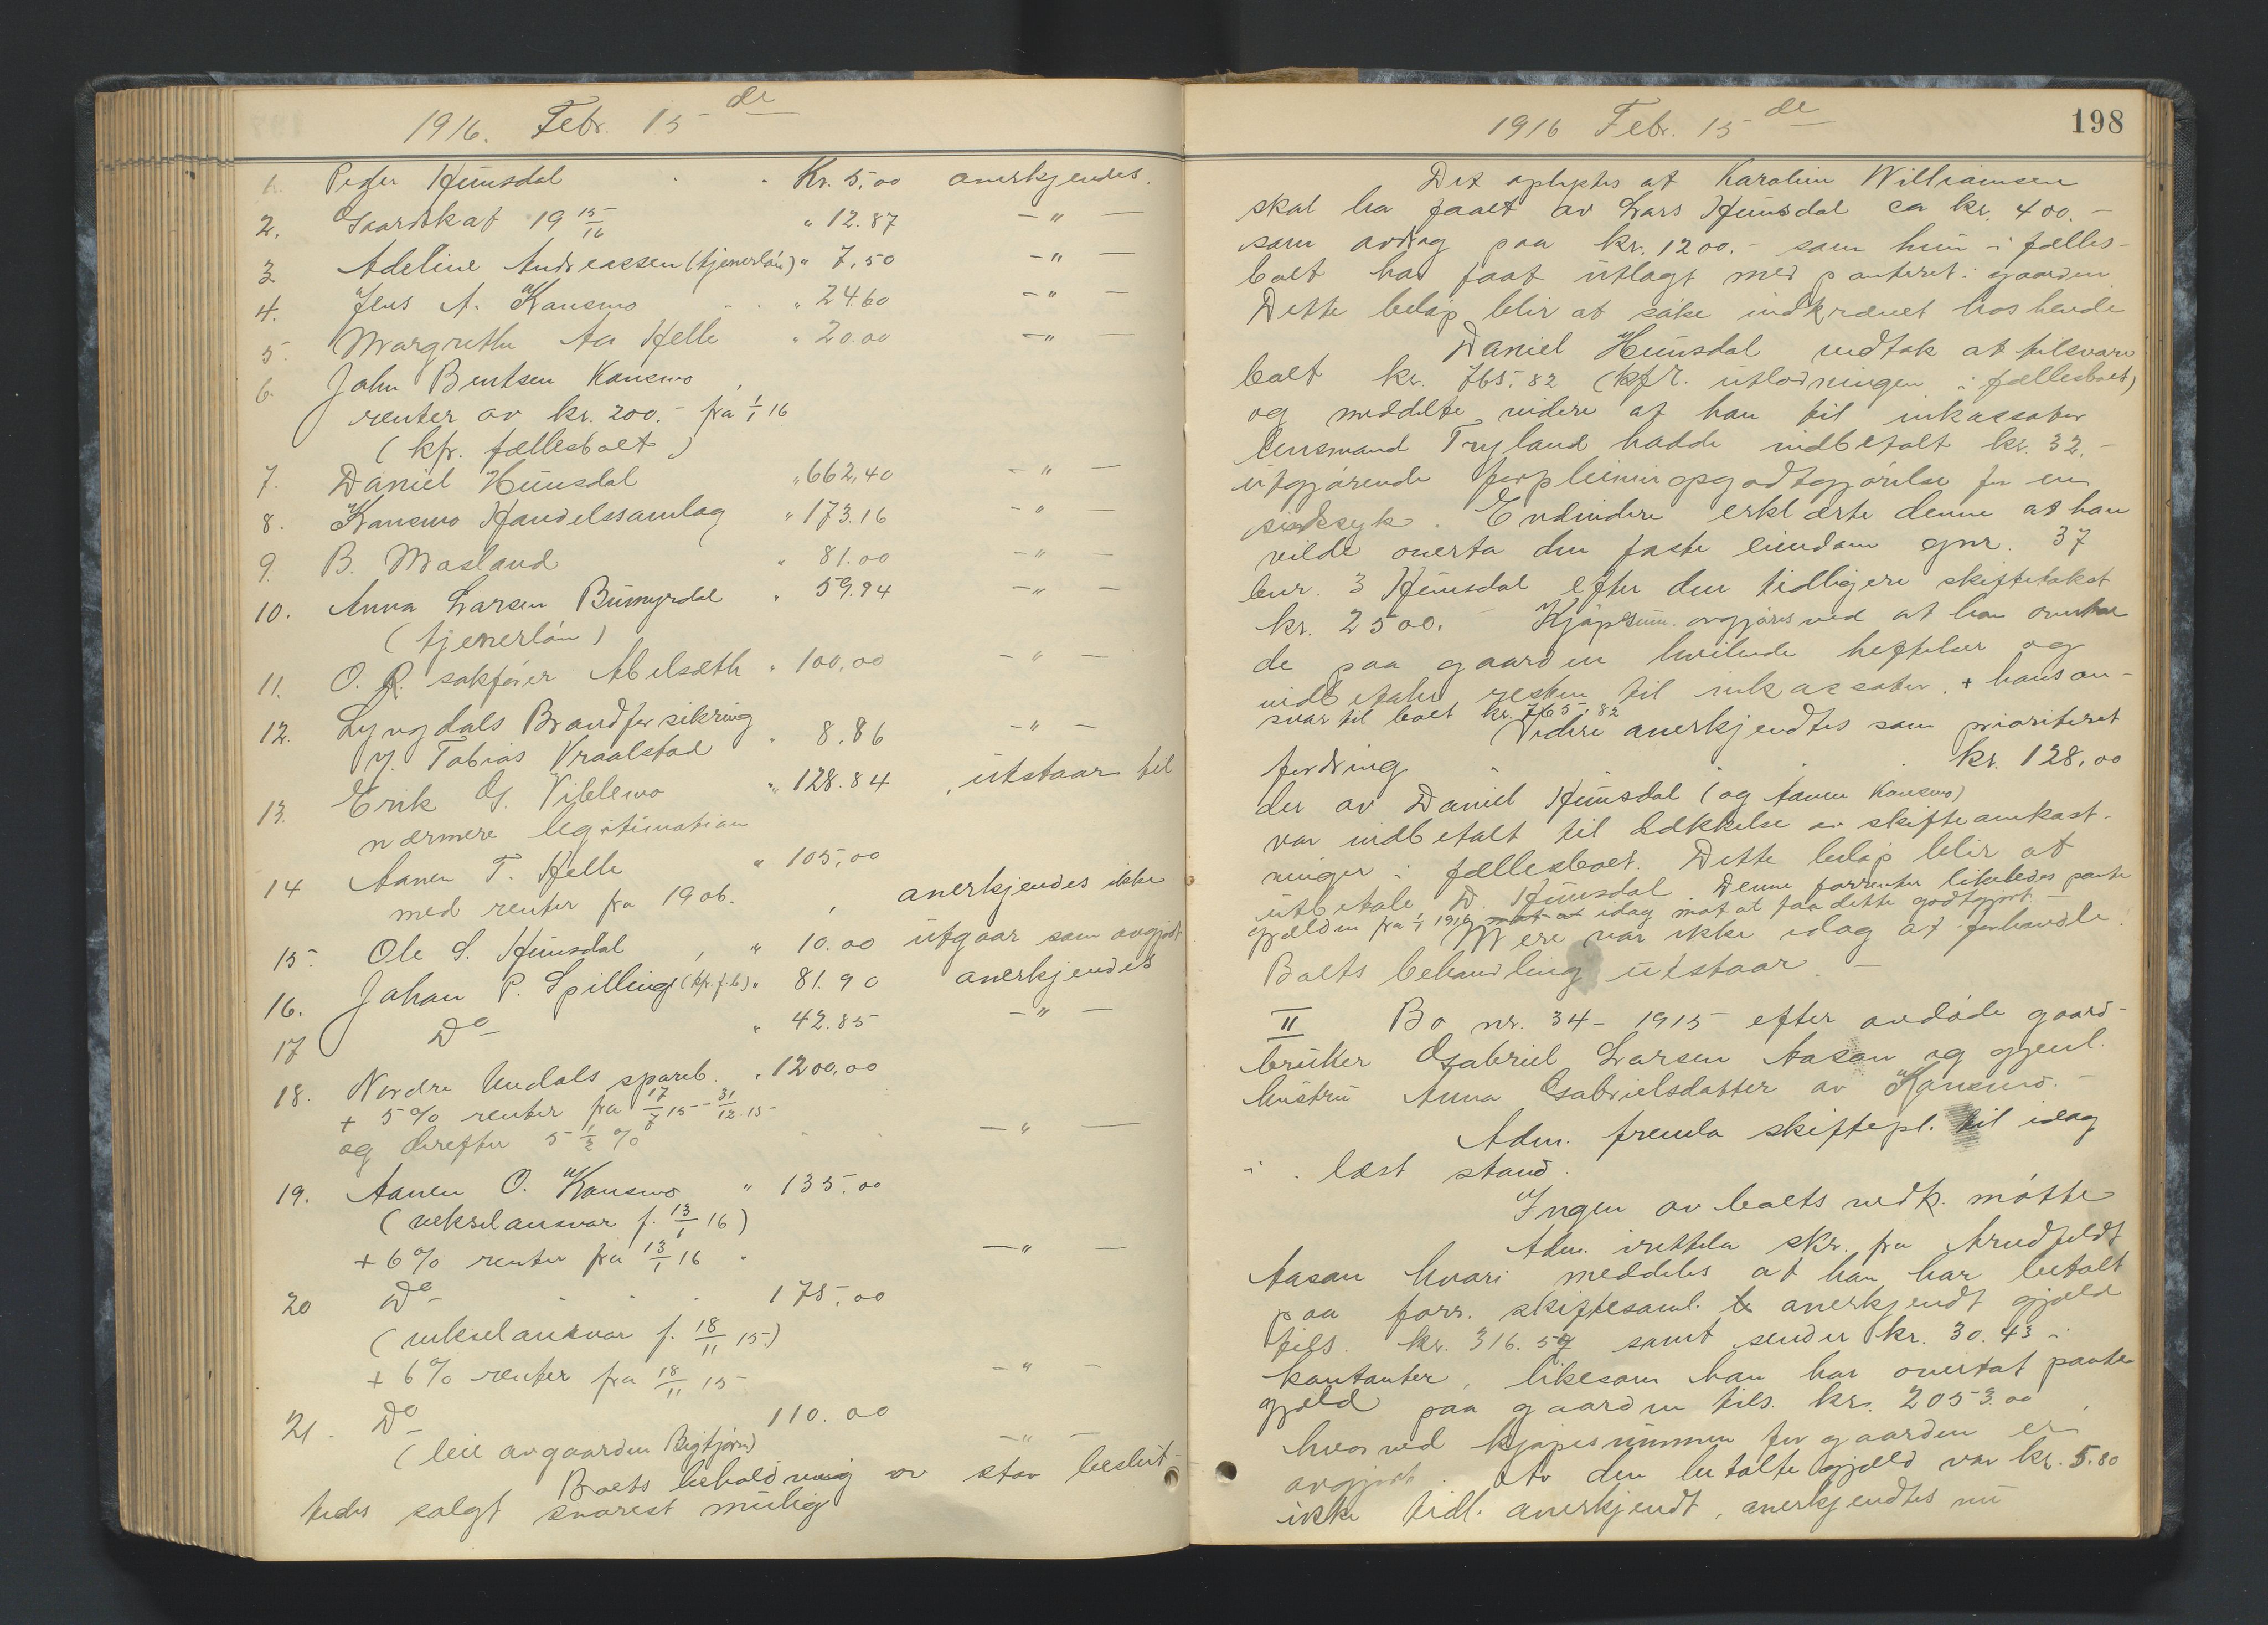 1916. Febr. 15de
1. Peder Hunsdal Kr. 5,00 anerkjendes.
2. Gaardskat 19 15/16 " 12.87 — " —
3 Adeline Andreassen (tjenerløn) " 7,50 — " —
4. Jens A. Kansmo " 24.60 — " —
5. Margrethe Aa Helle " 20.00 — " —
6. John Bentsen Kansmo
renter av kr. 200.- fra 1/1 16
(kfr. fællesboet)
7. Daniel Hunsdal " 662,40 — " —
8. Kansmo Handelssamlag " 173.16 — " —
9. B. Masland " 81.00 — " —
10. Anna Larsen Bumyrdal " 59.94 — " —
(tjenerløn)
11. O. R. sakfører Abelsæth " 100,00 — " —
12. Lyngdals Brandforsikring
v. Tobias Vraalstad " 8.86 — " —
13. Erik G. Viblemo " 128.84, utstaar til
nærmere legitimation
14 Aanen T. Helle " 105,00
med renter fra 1906. , anerkjendes ikke
15. Ole S. Hunsdal , " 10.00 utgaar som avgjort
16. Johan P. Spilling (kfr. f.b) " 81.90 anerkjendes
17 Do " 42.85 — " —
18. Nordre Undals spareb. " 1200,00
+ 5% renter fra 17/7 15 - 31/12.15
og derefter 5 1/2 % — " —
19. Aanen O. Kansmo " 135,00
(vekselansvar f. 13/1 16)
+ 6% renter fra 13/1 16 — " —
20 Do 175,00
(vekselansvar f. 18/11 15)
+ 6% renter fra 18/11 15 — " —
21. Do 110.00
(leie av gaarden Bigtjørn) — " —
Boets beholdning av stav beslut-
tedes solgt snarest mulig
1916 Febr. 15de 198
Det oplystes at Karolin Williamsen
skal ha faaet av Lars Hunsdal ca kr. 400.-
som avdrag paa kr. 1200.- som hun i fælles-
boet har faat utlagt med panteret i gaarden
Dette beløp blir at søke indkrævet hos hende
Daniel Hunsdal vedtok at tilsvare
boet kr. 765.82 (kfr. utlodningen i fællesboet)
og meddelte videre at han til inkassator
lensmand Tryland hadde indbetalt kr. 32.-
utgjørende forpleiningsgodtgjørelse for en
sindssyk. Endvidere erklærte denne at han
vilde overta den faste eiendom gnr. 37
bnr. 3 Hunsdal efter den tidligere skiftetakst
kr. 2500. - Kjøpsum. avgjøres ved at han overtar
de paa gaarden hvilende heftelser og
indbetaler resten til inkassator. + hans an-
svar til boet kr. 765,82
Videre anerkjendtes som prioriteret
fordring kr. 128.00
der av Daniel Hunsdal (og Aanen Kansmo)
var indbetalt til dækkelse av skifteomkost-
ninger i fællesboet. Dette beløp blir at
utbetale D. Hunsdal Denne forrenter likeledes pante
gjælden fra 1/1 1916 idag mot at faa dette godtgjort —
Mere var ikke idag at forhandle.
Boets behandling utstaar. —
II Bo nr. 34 - 1915 efter avdøde gaard-
bruker Gabriel Larsen Aasan og gjenl.
hustru Anna Gabrielsdatter av Kansmo. -
Adm. fremla skiftepl. til idag
i læst stand.
Ingen av boets vedk. møtte
Adm. irettela skr. fra Arndfeldt
Aasan hvori meddeles at han har betalt
paa forr. skiftesaml. anerkjendt gjæld
tils. kr. 316.59 samt sender kr. 30.43 i
kontanter, likesom han har overtat pante
gjæld paa gaarden tils. kr. 2053.00,
hvorved kjøpesummen for gaarden er
avgjort. Av den betalte gjæld var kr. 5.80
ikke tidl. anerkjendt, anerkjendtes nu